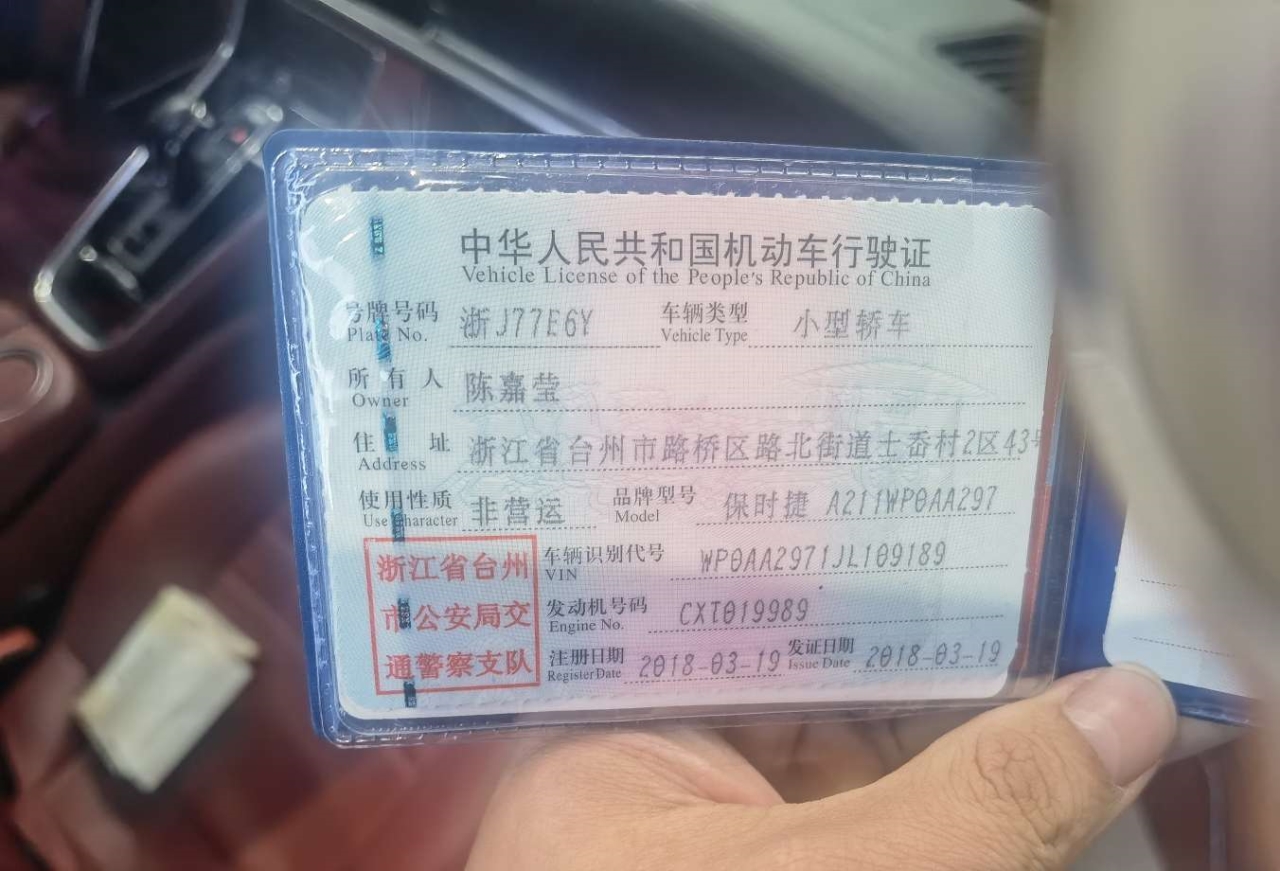 中华人民共和国机动车行驶证
Vehicle License of the People's Republic of China
号牌号码 浙J77E6Y 车辆类型 小型轿车
Plate No. Vehicle Type
所有人 陈嘉莹
Owner
住址 浙江省台州市路桥区路北街道土岙村2区43号
Address
使用性质 非营运 品牌型号 保时捷 A211WP0AA297
Use Character Model
浙江省台州
市公安局交
通警察支队
车辆识别代号 WP0AA2971JL109189
VIN
发动机号码 CXT019989
Engine No.
注册日期 2018-03-19 发证日期 2018-03-19
Register Date Issue Date